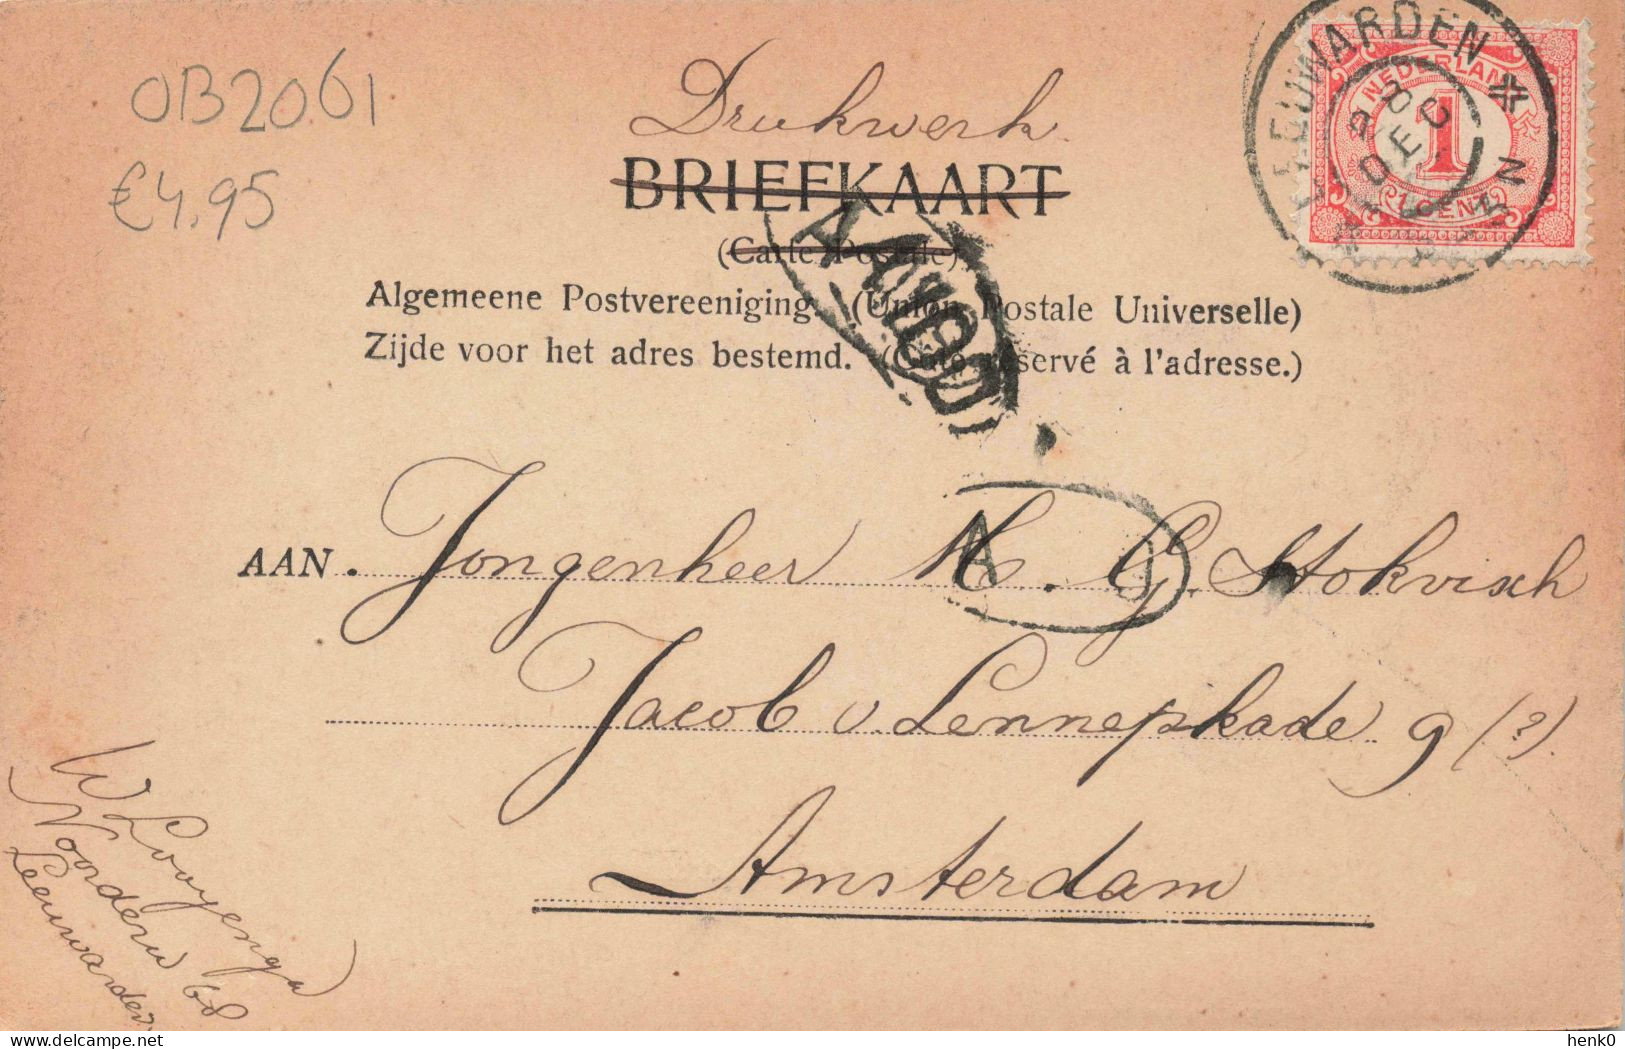 OB2061
€4.95
Drukwerk
BRIEFKAART
(Carte Postale)
Algemeene Postvereeniging. (Union Postale Universelle)
Zijde voor het adres bestemd. (Côté réservé à l'adresse.)
LEEUWARDEN
NEDERLAND
1
CENT
DEC
N
A
AAN. Jongenheer H. G. Stokvisch
A
Jacob v. Lennepkade 9 (?).
Amsterdam
W Looyenga
Noorderw 68
Leeuwarden
henk0